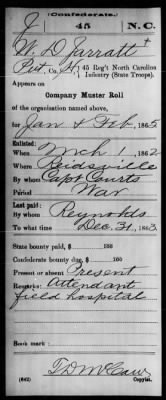 (Confederate.)
J 45 N.C.
W. D. Jarratt
Pvt, Co. H, 45 Reg't North Carolina
Infantry (State Troops).
Appears on
Company Muster Roll
of the organization named above,
for Jan & Feb, 1865
Enlisted:
When Mch 1, 1862
Where Reidsville
By whom Capt Courts
Period War
Last paid:
By whom Reynolds
To what time Dec 31, 1863
State bounty paid, $ 100
Confederate bounty due, $ 100
Present or absent Present
Remarks: Attendant
field hospital
Book mark:
(642) Copyist.